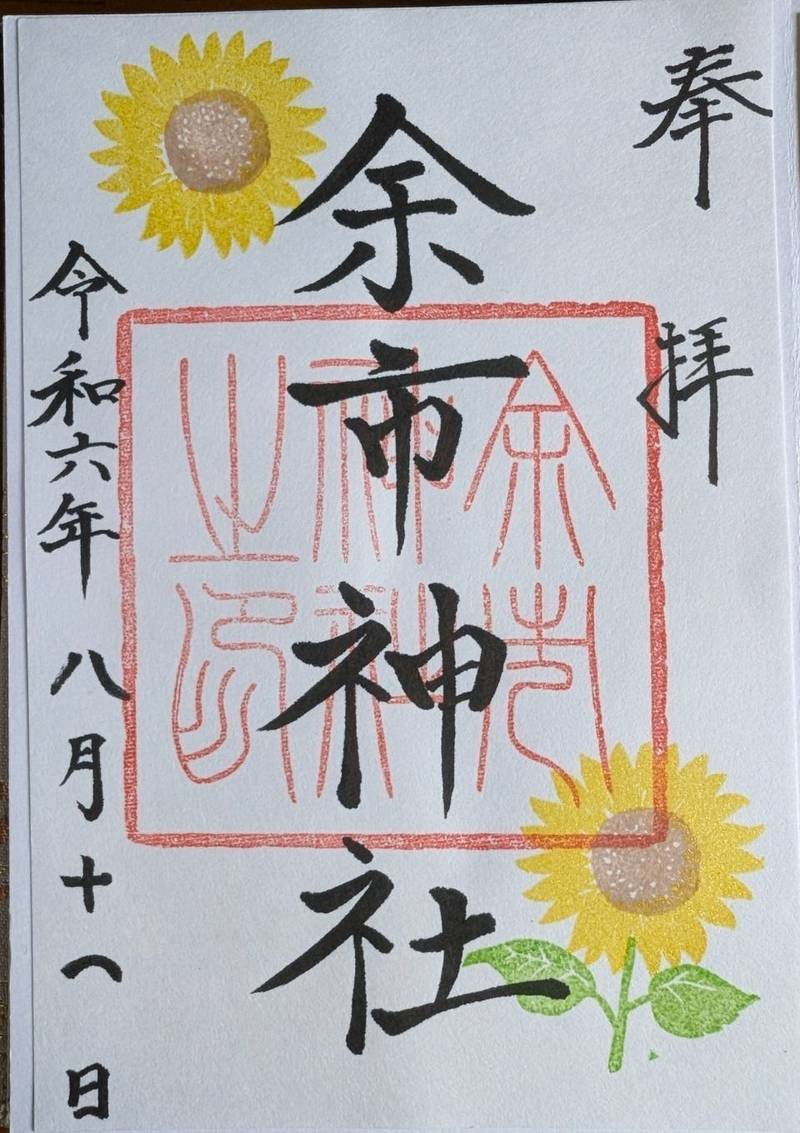 奉拝
余市神社
令和六年 八月十 日
余市
神社
之印